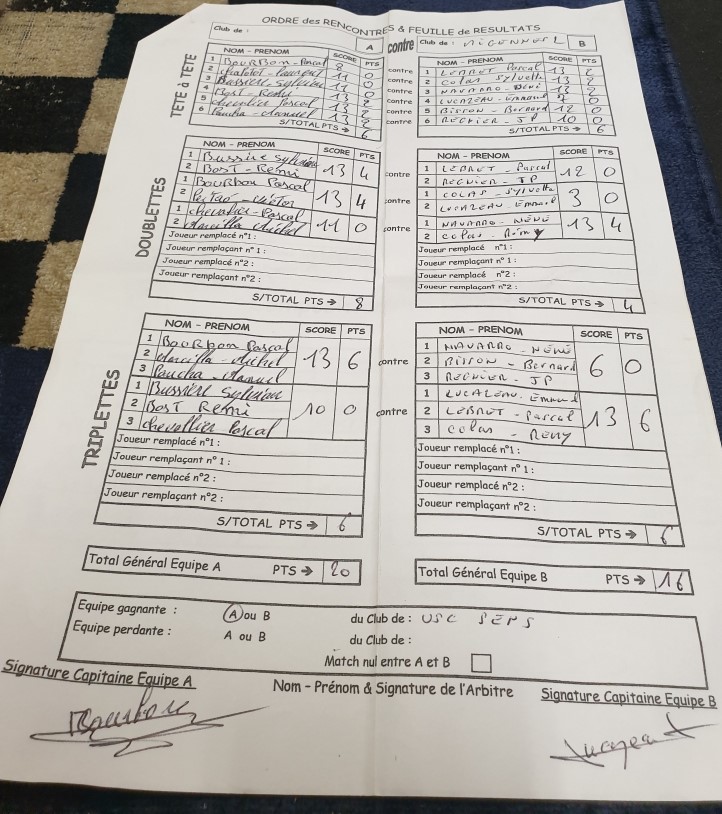 ORDRE des RENCONTRES & FEUILLE de RESULTATS
Club de : A contre Club de : B
TETE à TETE
NOM - PRENOM SCORE PTS
1 BourBon - Pascal 8 0
2 11 0
3 Bussière Sylviane 11 0
4 Bost - Remi 0
5 chevallier Pascal 13 2
6 Paucha - Manuel 13 2
S/TOTAL PTS → 6
contre
contre
contre
contre
contre
contre
NOM - PRENOM SCORE PTS
1 LEBRUT Pascal 13 2
2 Colas Sylvette 13 2
3 NAVARRO - Néné 13 2
4 LUCAZEAU - Emmanuel 0
5 BISSON - Bernard 12 0
6 REGNIER - JP 10 0
S/TOTAL PTS → 6
DOUBLETTES
NOM - PRENOM SCORE PTS
1 Bussière Sylviane 13 4
2 Bost - Remi
1 Bourbon Pascal 13 4
2
1 chevallier - Pascal 11 0
2 Marcilla Michel
Joueur remplacé n°1 :
Joueur remplaçant n°1 :
Joueur remplacé n°2 :
Joueur remplaçant n°2 :
S/TOTAL PTS → 8
contre
contre
contre
NOM - PRENOM SCORE PTS
1 LEBRUT - Pascal 12 0
2 REGNIER JP
1 COLAS - Sylvette 3 0
2 LUCAZEAU - Emmanuel
1 NAVARRO - NÉNÉ 13 4
2 Colas - Rémy
Joueur remplacé n°1 :
Joueur remplaçant n°1 :
Joueur remplacé n°2 :
Joueur remplaçant n°2 :
S/TOTAL PTS → 4
TRIPLETTES
NOM - PRENOM SCORE PTS
1 BouRbon Pascal 13 6
2 Marcilla - Michel
3 Paucha - Manuel
1 Bussière Sylviane 10 0
2 Bost Remi
3 chevallier Pascal
Joueur remplacé n°1 :
Joueur remplaçant n°1 :
Joueur remplacé n°2 :
Joueur remplaçant n°2 :
S/TOTAL PTS → 6
contre
contre
NOM - PRENOM SCORE PTS
1 NAVARRO - NÉNÉ 6 0
2 BISSON - Bernard
3 REGNIER - JP
1 LUCAZEAU - Emmanuel 13 6
2 LEBRUT - Pascal
3 Colas - Rémy
Joueur remplacé n°1 :
Joueur remplaçant n°1 :
Joueur remplacé n°2 :
Joueur remplaçant n°2 :
S/TOTAL PTS → 6
Total Général Equipe A PTS → 20
Total Général Equipe B PTS → 16
Equipe gagnante : A ou B du Club de : USC SEPS
Equipe perdante : A ou B du Club de :
Match nul entre A et B
Signature Capitaine Equipe A
Nom - Prénom & Signature de l'Arbitre
Signature Capitaine Equipe B